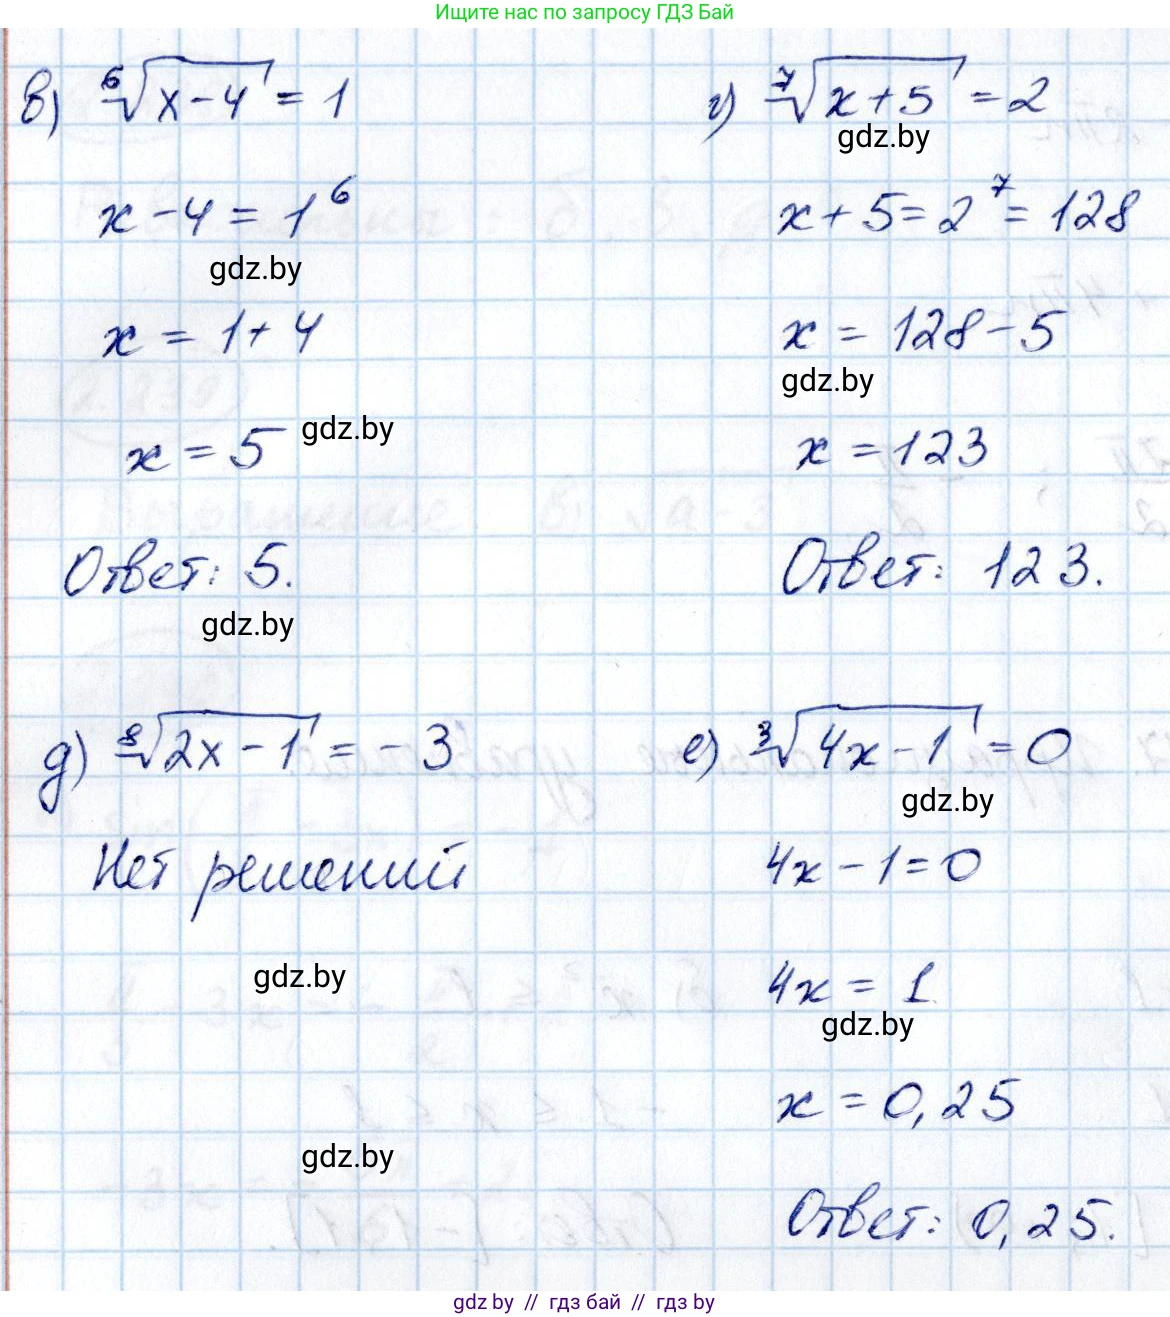 Ищите нас по запросу ГДЗ Бай
в) ⁶√(x-4) = 1
x-4 = 1⁶
gdz.by
x = 1+4
x = 5 gdz.by
Ответ: 5.
gdz.by
г) ⁷√(x+5) = 2
gdz.by
x+5 = 2⁷ = 128
x = 128-5
gdz.by
x = 123
Ответ: 123.
д) ⁸√(2x-1) = -3
Нет решений
gdz.by
gdz.by
е) ³√(4x-1) = 0
gdz.by
4x-1 = 0
4x = 1
gdz.by
x = 0,25
Ответ: 0,25.
gdz by // гдз бай // гдз by